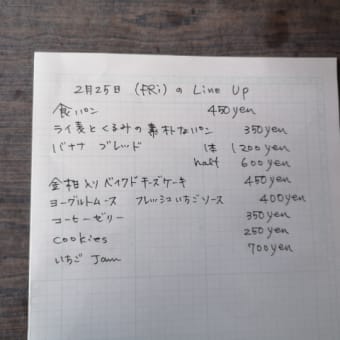 2月25日 (FRi) の Line Up
食パン 450yen
ライ麦とくるみの素朴なパン 350yen
バナナ ブレッド 1本 1200yen
half 600yen
金柑入りベイクドチーズケーキ 450yen
ヨーグルトムース フレッシュいちごソース 400yen
コーヒーゼリー 350yen
cookies 250yen
いちご Jam 700yen